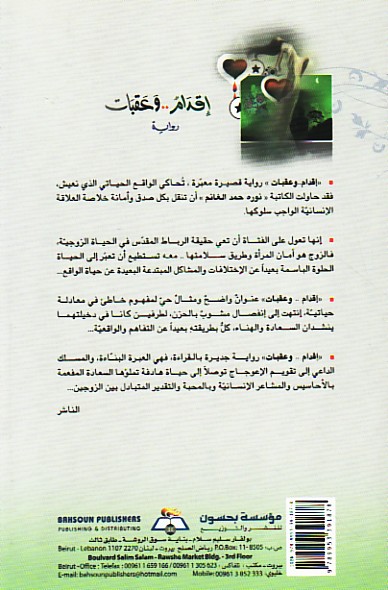 إقدام .. وعقبات
رواية
«إقدام..وعقبات» رواية قصيرة معبّرة، تُحاكي الواقع الحياتي الذي نعيش،
فقد حاولت الكاتبة «نوره حمد الغانم» أن تنقل بكل صدق وأمانة خلاصة العلاقة
الإنسانيّة الواجب سلوكها.
إنها تعول على الفتاة أن تعي حقيقة الرباط المقدّس في الحياة الزوجيّة،
فالزوج هو أمان المرأة وطريق سلامتها .. معه تستطيع أن تعبر إلى الحياة
الحلوة الباسمة بعيداً عن الإختلافات والمشاكل المبتدعة البعيدة عن حياة الواقع...
«إقدام .. وعقبات» عنوانٌ واضحٌ ومثالٌ حيّ لمفهوم خاطئ في معادلة
حياتيّة، إنتهت إلى إنفصال مشوب بالحزن، لطرفين كانا في دخيلتهما
ينشدان السعادة والهناء، كلّ بطريقته بعيداً عن التفاهم والواقعيّة...
«إقدام .. وعقبات» رواية جديرة بالقراءة، فهي العبرة البنّاءة، والمسلك
الداعي إلى تقويم الإعوجاج توصلاً إلى حياة هادفة تملؤها السعادة المفعمة
بالأحاسيس والمشاعر الإنسانيّة وبالمحبة والتقدير المتبادل بين الزوجين...
الناشر
مؤسسة بحسون
للنشر والتوزيع
BAHSOUN PUBLISHERS
PUBLISHING & DISTRIBUTING
بولفار سليم سلام - بناية سوق الروشة - طابق ثالث
ص.ب: P.O.Box: 11- 8505 رياض الصلح بيروت - لبنان Beirut - Lebanon 1107 2270
Boulvard Salim Salam - Rawshe Market BLDG - 3rd Floor
بيروت - مكتب : تلفاكس : Beirut - Office : Telefax : 00961 1 659 166 / 00961 1 305 623
خليوي: Mobile: 00961 3 052 333 E-mail: bahsounpublishers@hotmail.com